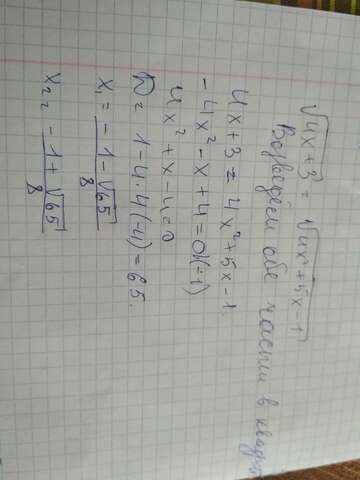 √4x+3 = √4x²+5x-1
Возведём обе части в квадрат
4x+3 = 4x²+5x-1
-4x²-x+4=0|(-1)
4x²+x-4=0
D = 1-4·4(-4)=65.
x₁ = -1-√65 / 8
x₂ = -1+√65 / 8